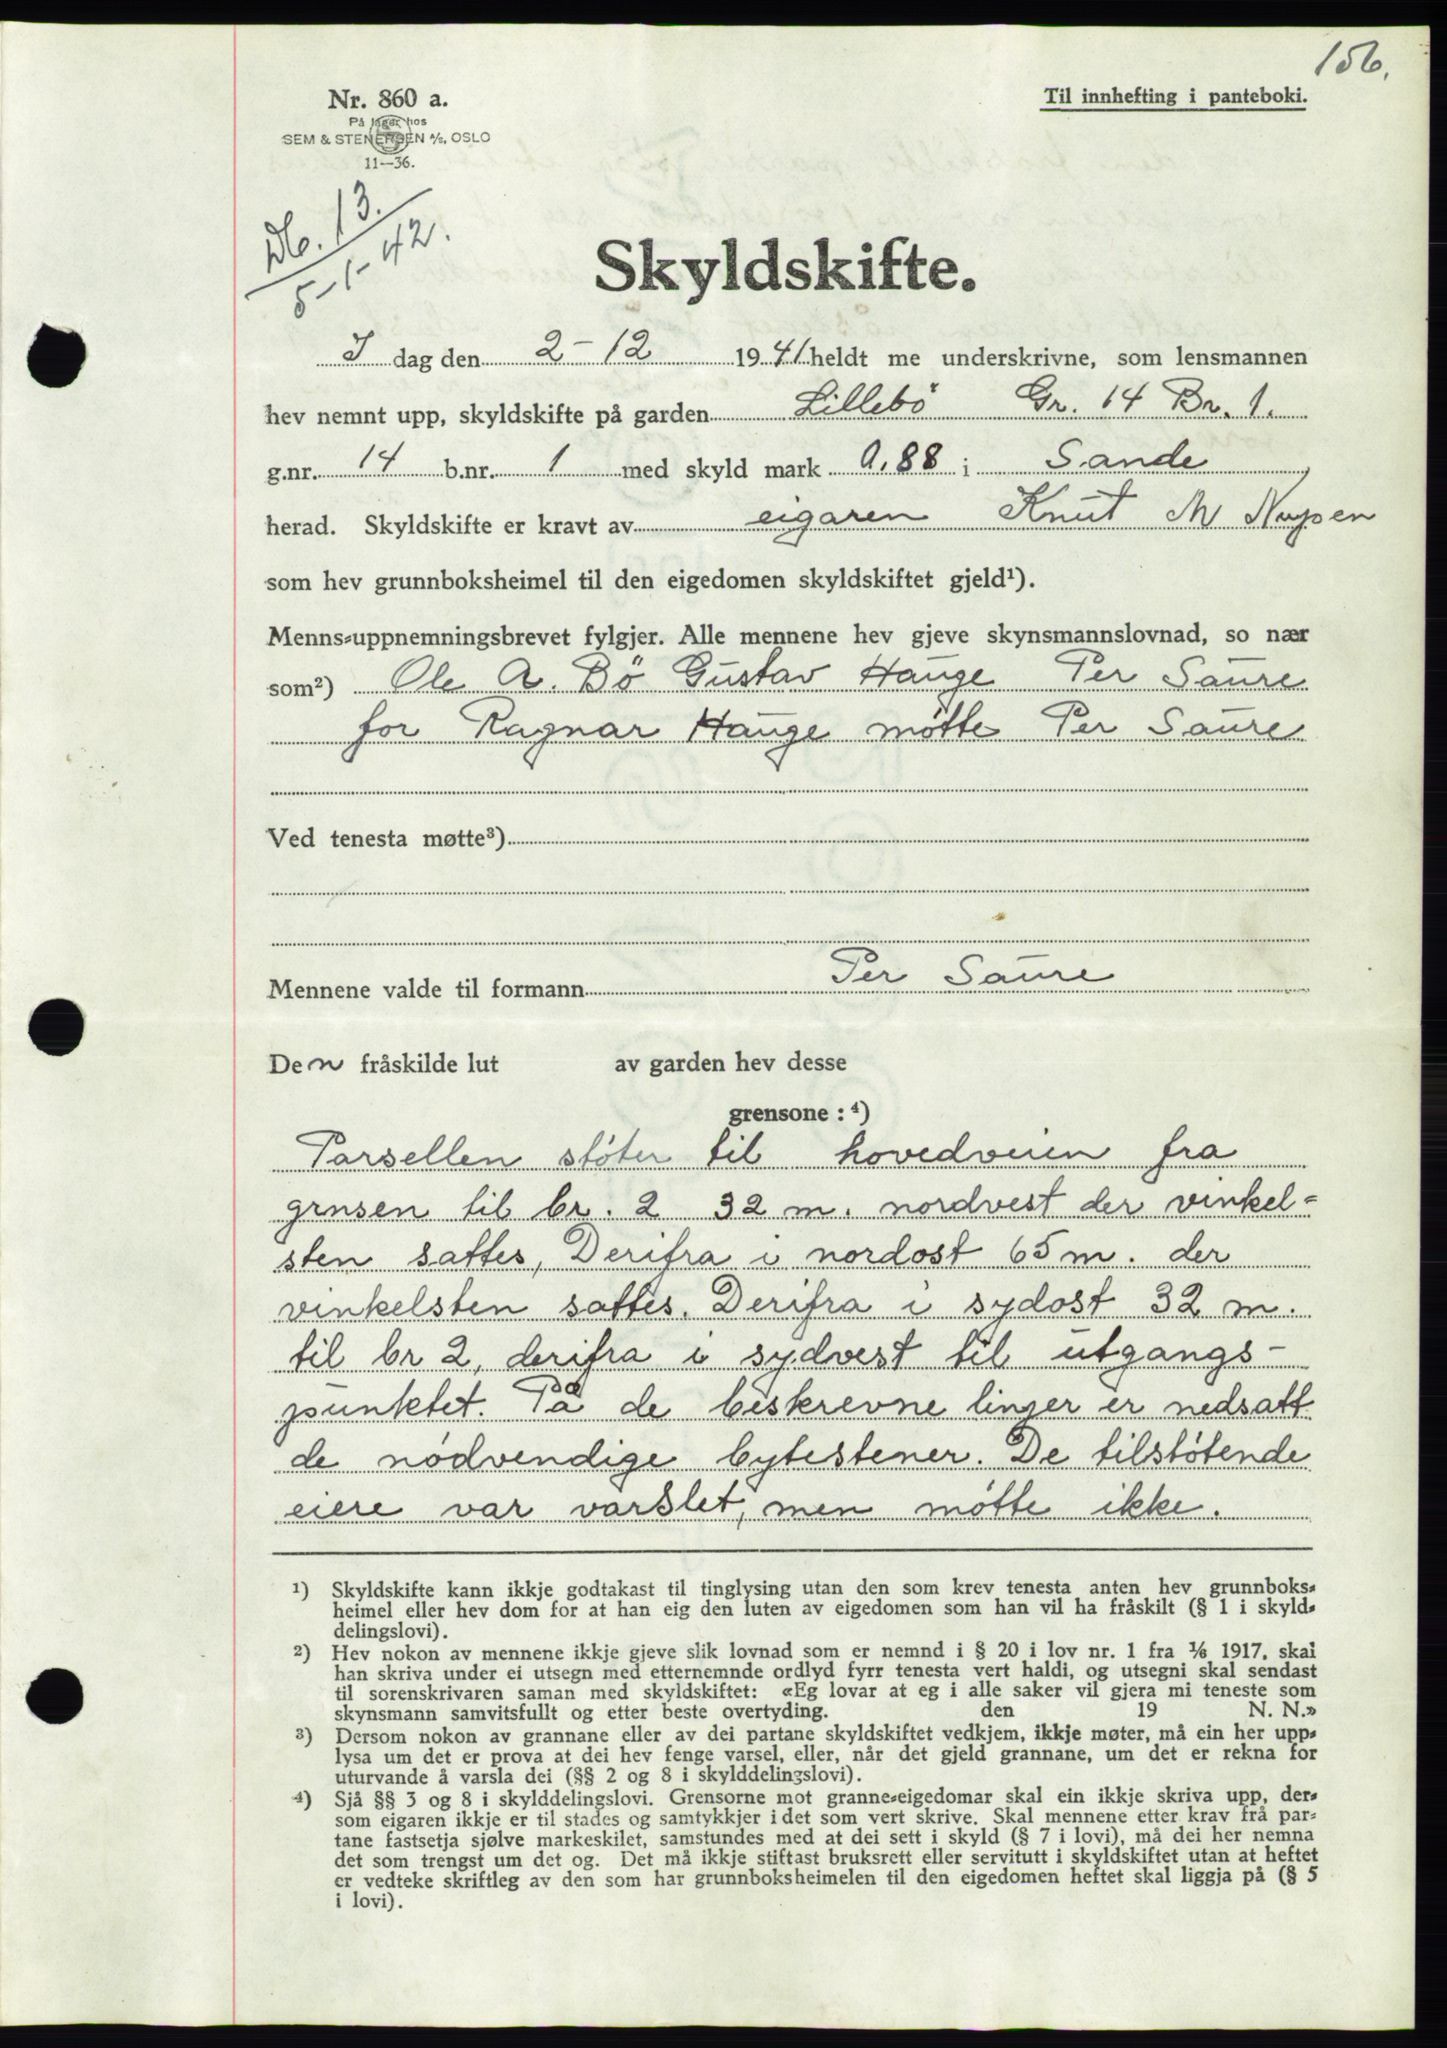 156.
Nr. 860 a.
Til innhefting i panteboki.
På lager hos
SEM & STENERSEN A/S, OSLO
11—36.
Db. 13.
5-1-42.
Skyldskifte.
I dag den 2-12 1941 heldt me underskrivne, som lensmannen
hev nemnt upp, skyldskifte på garden Lillebö Gr. 14 Br. 1.
g.nr. 14 b.nr. 1 med skyld mark 0,88 i Sande
herad. Skyldskifte er kravt av eigaren Knut M
som hev grunnboksheimel til den eigedomen skyldskiftet gjeld¹).
Menns-uppnemningsbrevet fylgjer. Alle mennene hev gjeve skynsmannslovnad, so nær
som²) Ole A. Bö Gustav Hauge Per Saure
for Ragnar Hauge møtte Per Saure
Ved tenesta møtte³)
Mennene valde til formann Per Saure
Den fråskilde lut av garden hev desse
grensone : ⁴)
Parsellen støter til hovedveien fra
grnsen til br. 2 32 m. nordvest der vinkel=
sten sattes, Derifra i nordost 65 m. der
vinkelsten sattes. Derifra i sydost 32 m.
til br 2, derifra i sydvest til utgangs-
punktet. På de beskrevne linjer er nedsatt
de nödvendige bytestener. De tilstötende
eiere var varslet, men mötte ikke.
¹) Skyldskifte kann ikkje godtakast til tinglysing utan den som krev tenesta anten hev grunnboks-
heimel eller hev dom for at han eig den luten av eigedomen som han vil ha fråskilt (§ 1 i skyld-
delingslovi).
²) Hev nokon av mennene ikkje gjeve slik lovnad som er nemnd i § 20 i lov nr. 1 fra 1/6 1917, skal
han skriva under ei utsegn med etternemnde ordlyd fyrr tenesta vert haldi, og utsegni skal sendast
til sorenskrivaren saman med skyldskiftet: «Eg lovar at eg i alle saker vil gjera mi teneste som
skynsmann samvitsfullt og etter beste overtyding. den 19 N. N.»
³) Dersom nokon av grannane eller av dei partane skyldskiftet vedkjem, ikkje møter, må ein her upp-
lysa um det er prova at dei hev fenge varsel, eller, når det gjeld grannane, um det er rekna for
uturvande å varsla dei (§§ 2 og 8 i skylddelingslovi).
⁴) Sjå §§ 3 og 8 i skylddelingslovi. Grensorne mot granne-eigedomar skal ein ikkje skriva upp, der-
som eigaren ikkje er til stades og samtykkjer i det som vert skrive. Skal mennene etter krav frå par-
tane fastsetja sjølve markeskilet, samstundes med at dei sett i skyld (§ 7 i lovi), må dei her nemna
det som trengst um det og. Det må ikkje stiftast bruksrett eller servitutt i skyldskiftet utan at heftet
er vedteke skriftleg av den som har grunnboksheimelen til den eigedomen heftet skal liggja på (§ 5
i lovi).